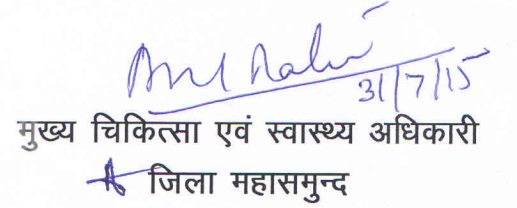 31/7/15
मुख्य चिकित्सा एवं स्वास्थ्य अधिकारी
जिला महासमुन्द